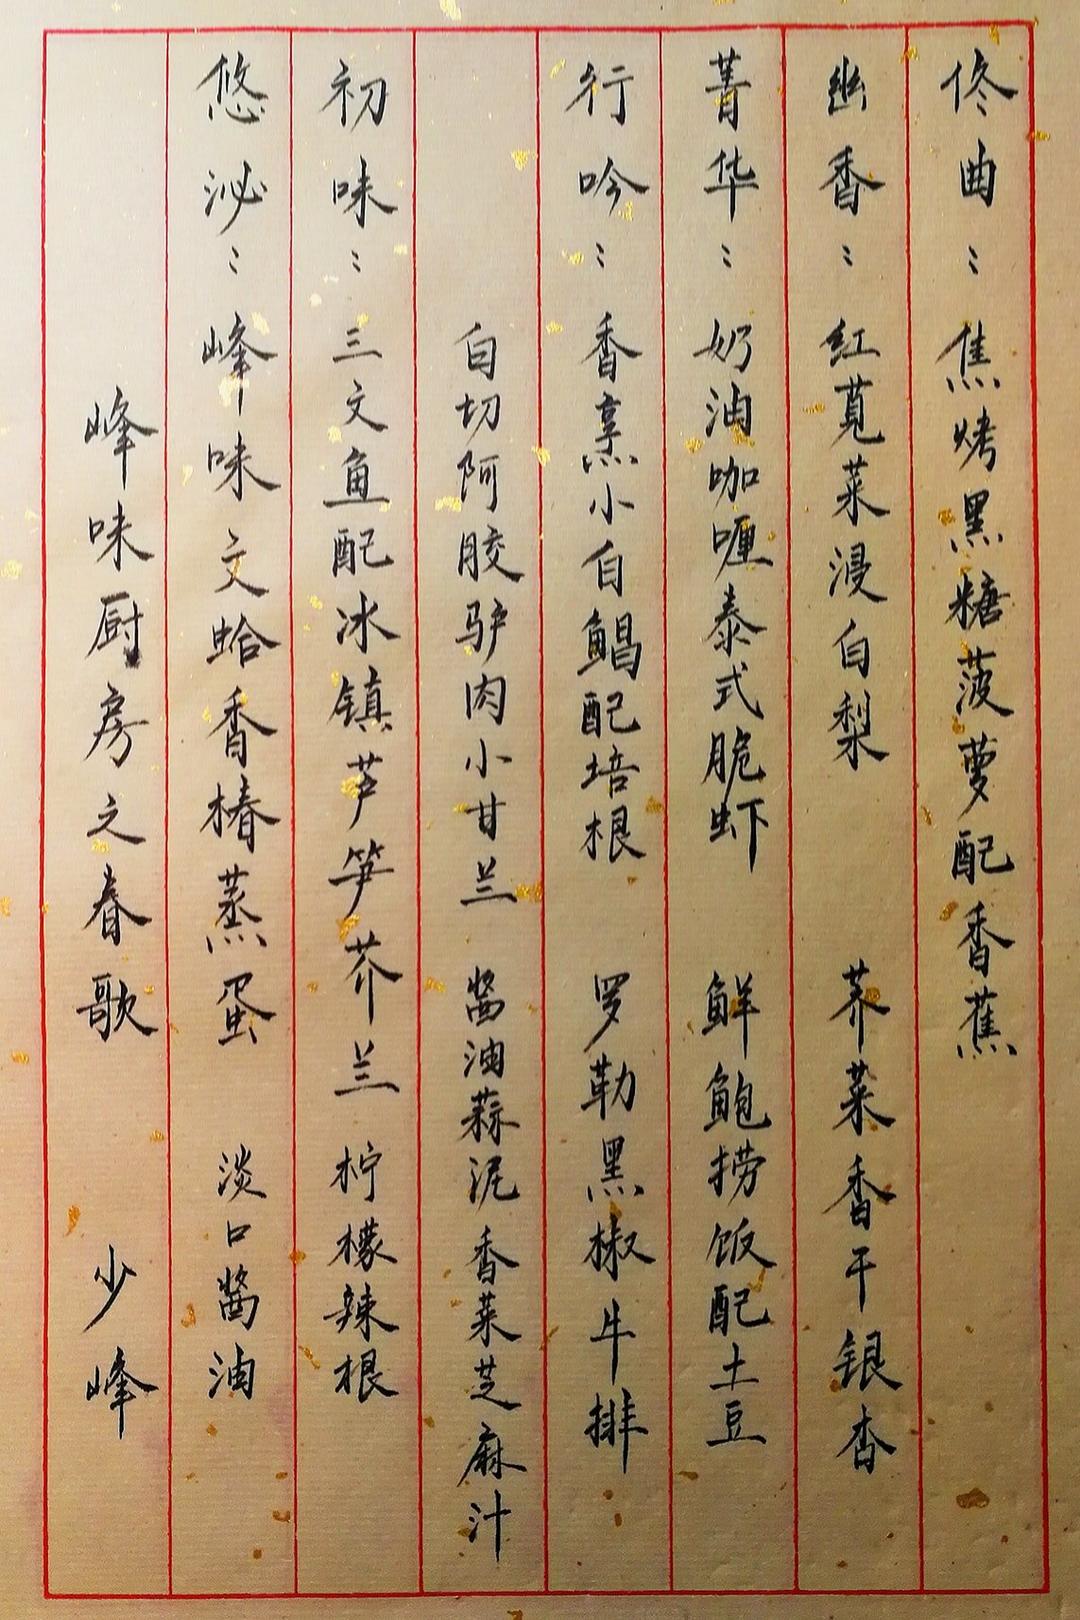 峰味厨房之春歌 少峰
悠泌：峰味文蛤香椿蒸蛋 淡口醬油
初味：三文鱼配冰镇芦笋芥兰 柠檬辣根
白切阿胶驴肉小甘兰 醬油蒜泥香菜芝麻汁
行吟：香烹小白鲳配培根 罗勒黑椒牛排
菁华：奶油咖喱泰式脆虾 鲜鲍捞饭配土豆
幽香：红莧菜浸白梨 荠菜香干银杏
佟曲：焦烤黑糖菠萝配香蕉